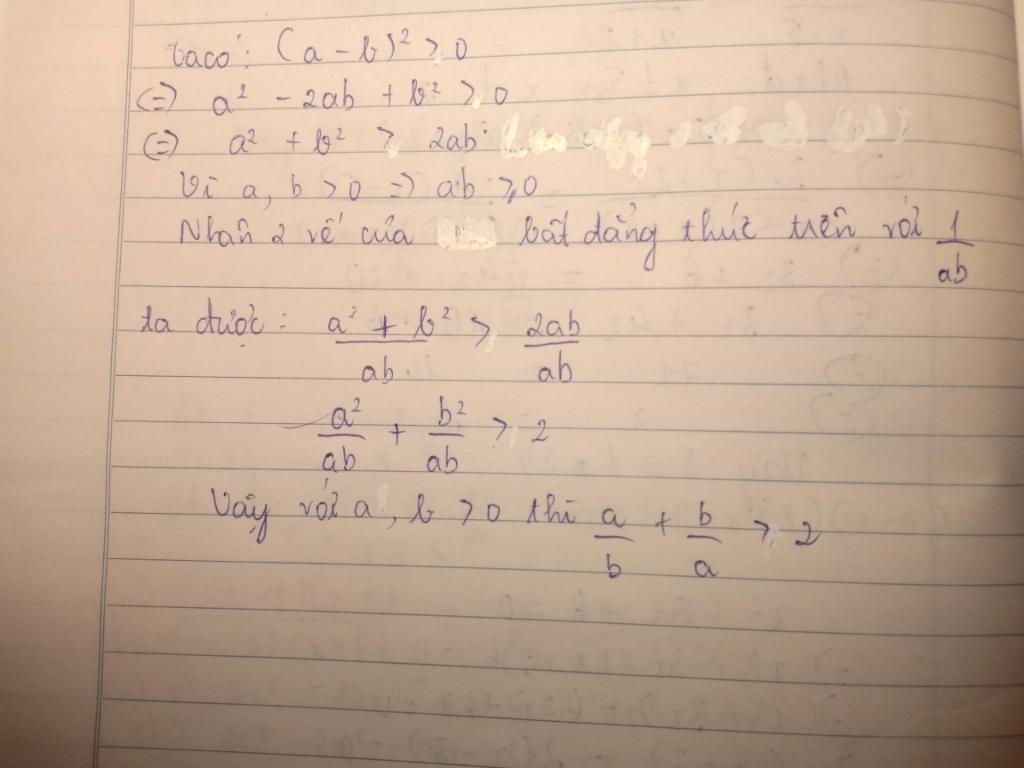 Ta có: (a - b)² ≥ 0
(=) a² - 2ab + b² ≥ 0
(=) a² + b² ≥ 2ab
Vì a, b > 0 => ab ≥ 0
Nhân 2 vế của bất đẳng thức trên với 1/ab
ta được: (a² + b²)/ab ≥ 2ab/ab
a²/ab + b²/ab ≥ 2
Vậy với a, b > 0 thì a/b + b/a ≥ 2